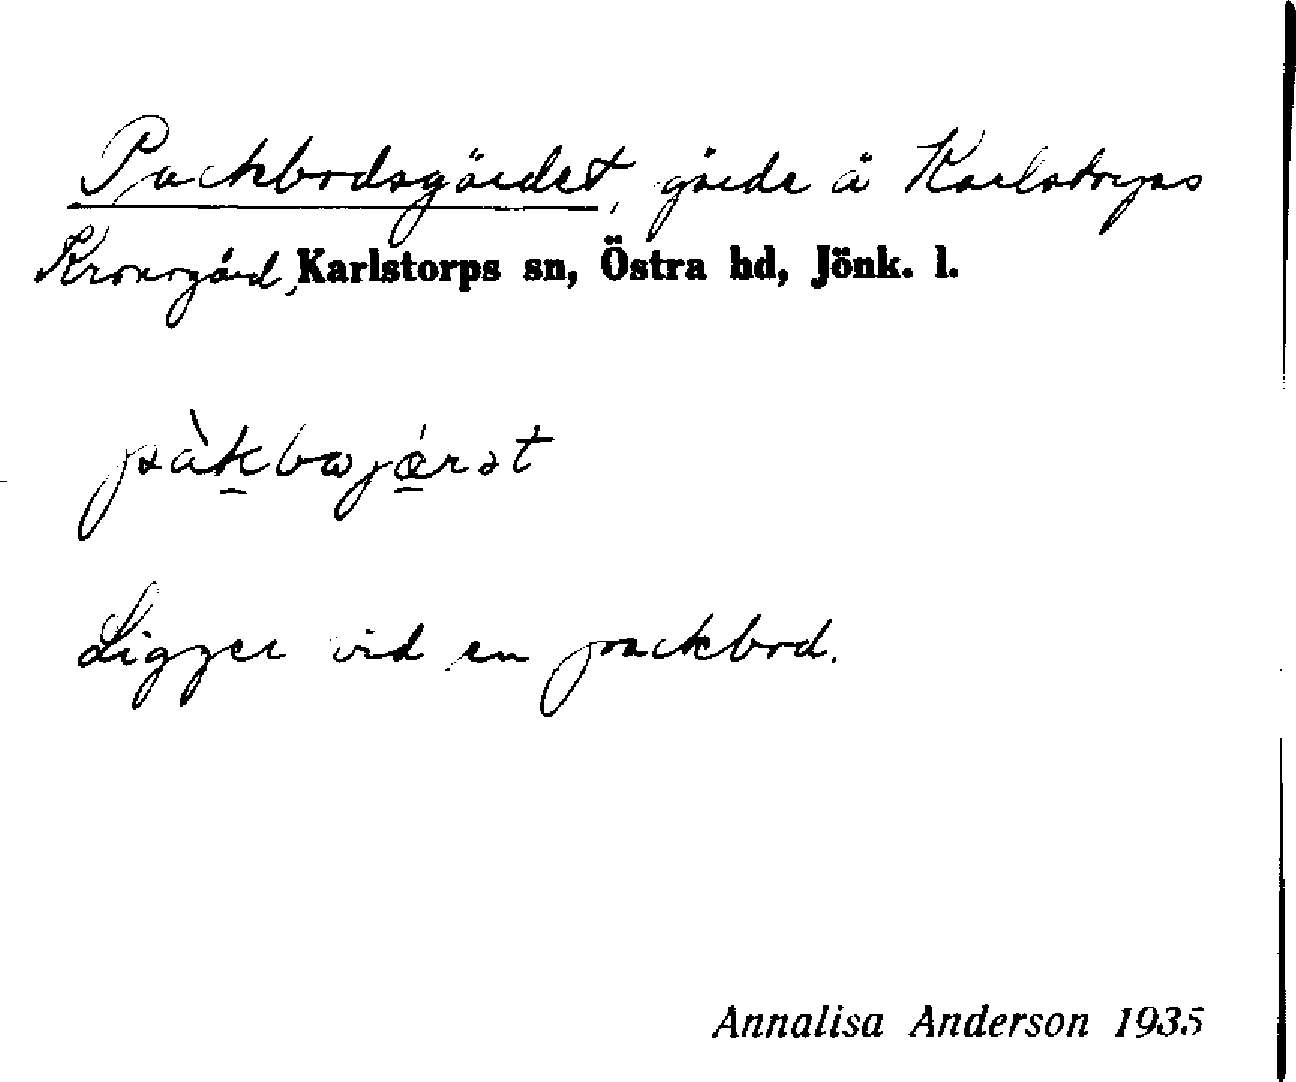 Packbodsgärdet, gärde å Karlstorps
Kronogård, Karlstorps sn, Östra hd, Jönk. l.
pàkbωjǽrət
Ligger vid en packbod.
Annalisa Anderson 1935